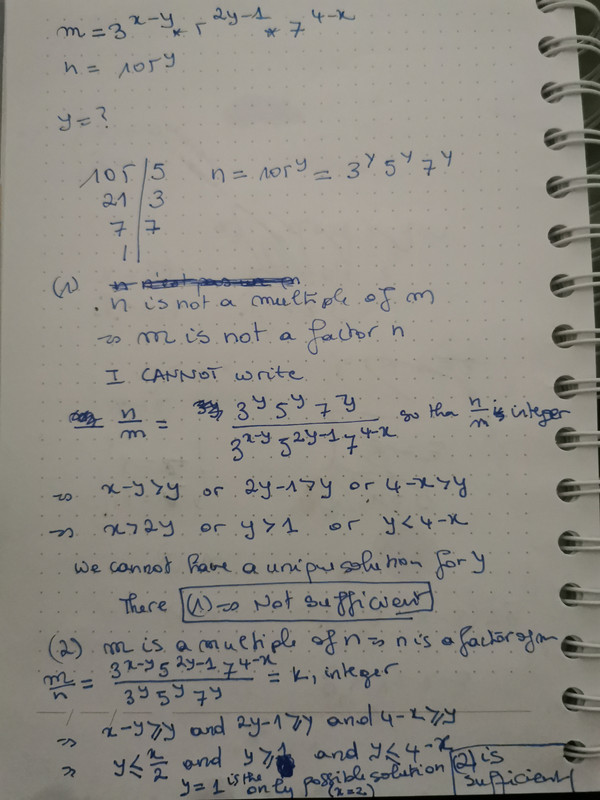 m = 3^{x-y} * 5^{2y-1} * 7^{4-x}
n = 105^y
y = ?
105 | 5 n = 105^y = 3^y 5^y 7^y
21 | 3
7 | 7
1 |
(1)
n is not a multiple of m
⇒ m is not a factor n
I CANNOT write
n/m = 3^y 5^y 7^y / 3^{x-y} 5^{2y-1} 7^{4-x} so tha n/m is integer
⇒ x-y>y or 2y-1>y or 4-x>y
⇒ x>2y or y>1 or y<4-x
We cannot have a unique solution for y
There (1) ⇒ Not sufficient
(2) m is a multiple of n ⇒ n is a factor of m
m/n = 3^{x-y} 5^{2y-1} 7^{4-x} / 3^y 5^y 7^y = k, integer
⇒ x-y⩾y and 2y-1⩾y and 4-x⩾y
⇒ y⩽x/2 and y⩾1 and y⩽4-x
y=1 is the only possible solution (x=2)
(2) is sufficient